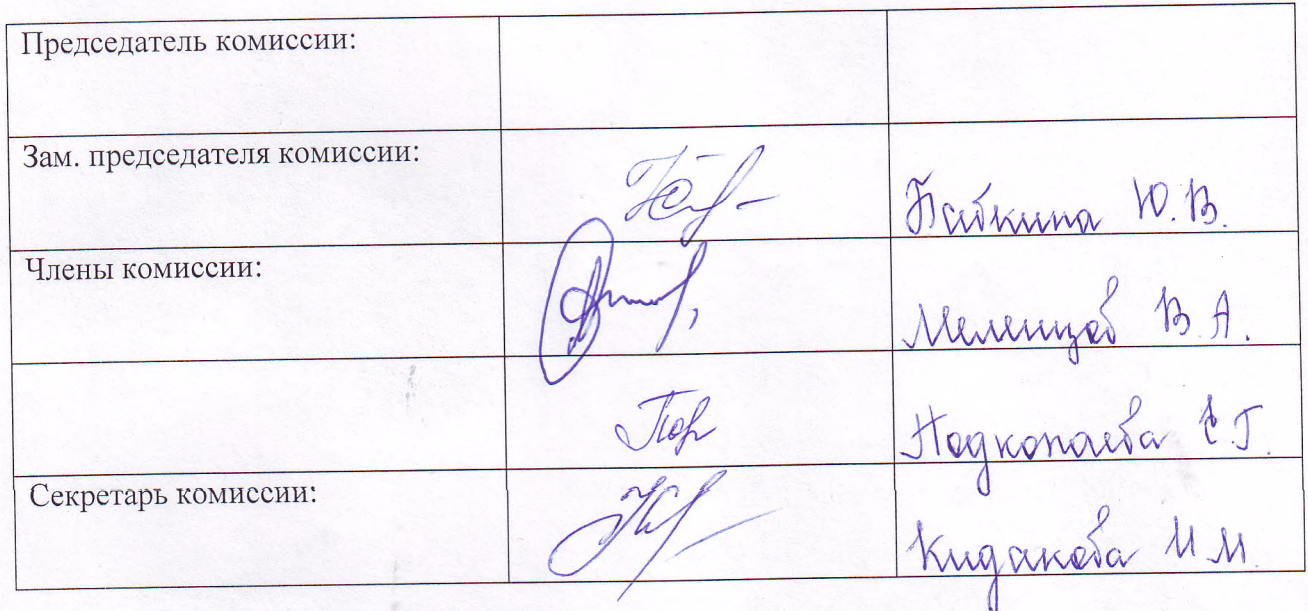 Председатель комиссии:
Зам. председателя комиссии:
Бабкина Ю.В.
Члены комиссии:
Меленцов В.А.
Подкопаева Е.Г.
Секретарь комиссии:
Кидакоева И.М.